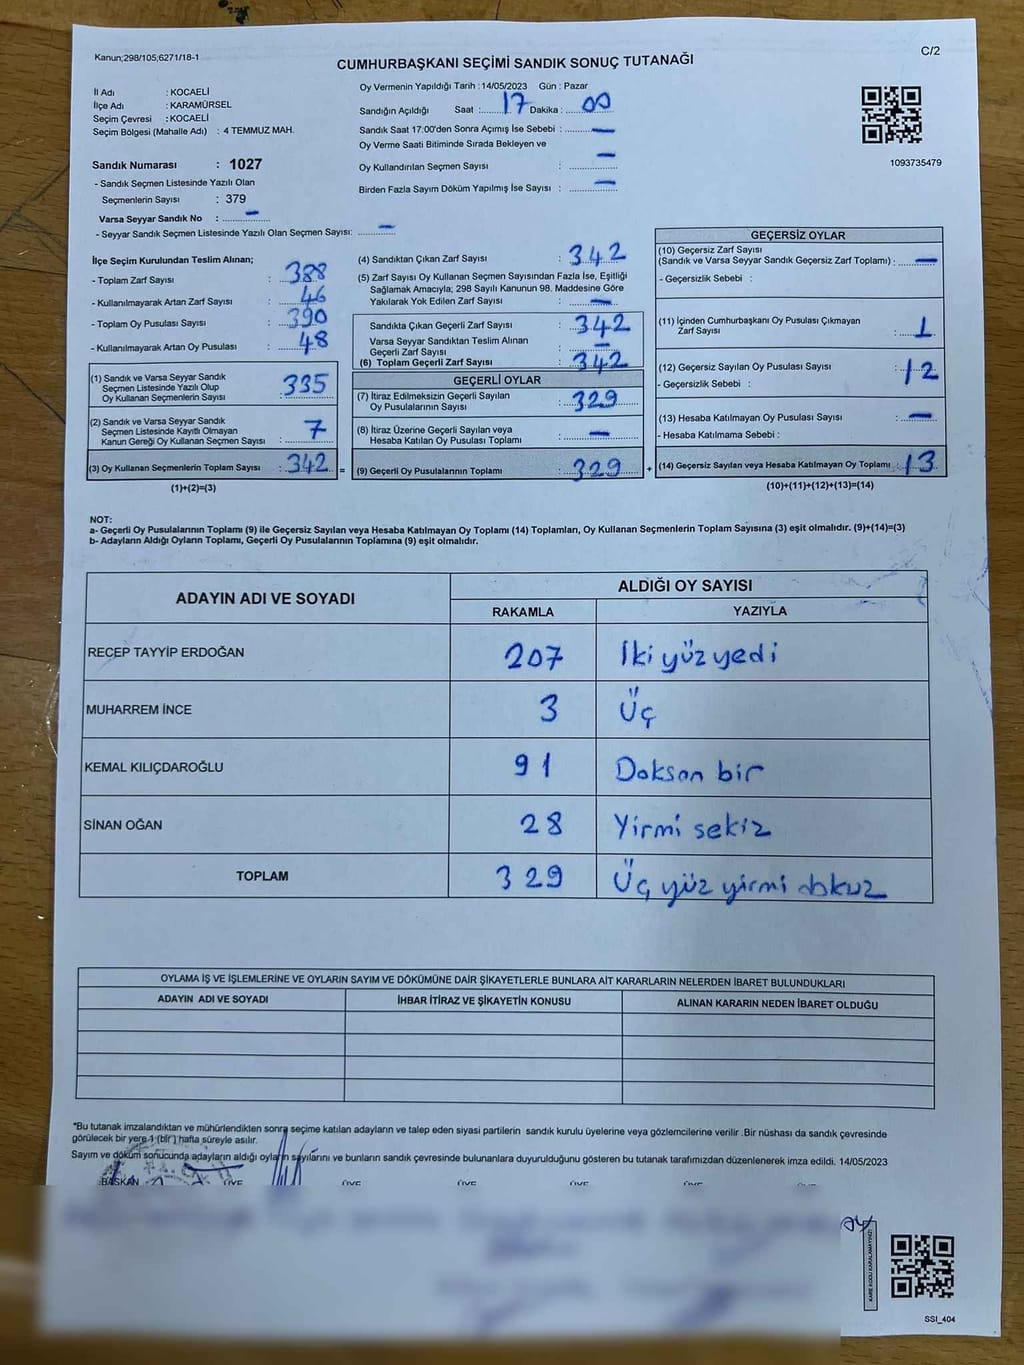 Kanun;298/105;6271/18-1
C/2
CUMHURBAŞKANI SEÇİMİ SANDIK SONUÇ TUTANAĞI
İl Adı : KOCAELİ
İlçe Adı : KARAMÜRSEL
Seçim Çevresi : KOCAELİ
Seçim Bölgesi (Mahalle Adı) : 4 TEMMUZ MAH.
Sandık Numarası : 1027
- Sandık Seçmen Listesinde Yazılı Olan
Seçmenlerin Sayısı : 379
Varsa Seyyar Sandık No : —
- Seyyar Sandık Seçmen Listesinde Yazılı Olan Seçmen Sayısı: —
Oy Vermenin Yapıldığı Tarih : 14/05/2023 Gün : Pazar
Sandığın Açıldığı Saat : 17 Dakika : 00
Sandık Saat 17:00'den Sonra Açımış İse Sebebi : —
Oy Verme Saati Bitiminde Sırada Bekleyen ve
Oy Kullandırılan Seçmen Sayısı : —
Birden Fazla Sayım Döküm Yapılmış İse Sayısı : —
1093735479
İlçe Seçim Kurulundan Teslim Alınan;
- Toplam Zarf Sayısı : 388
- Kullanılmayarak Artan Zarf Sayısı : 46
- Toplam Oy Pusulası Sayısı : 390
- Kullanılmayarak Artan Oy Pusulası : 48
(1) Sandık ve Varsa Seyyar Sandık
Seçmen Listesinde Yazılı Olup
Oy Kullanan Seçmenlerin Sayısı : 335
(2) Sandık ve Varsa Seyyar Sandık
Seçmen Listesinde Kayıtlı Olmayan
Kanun Gereği Oy Kullanan Seçmen Sayısı : 7
(3) Oy Kullanan Seçmenlerin Toplam Sayısı : 342 =
(1)+(2)=(3)
(4) Sandıktan Çıkan Zarf Sayısı : 342
(5) Zarf Sayısı Oy Kullanan Seçmen Sayısından Fazla İse, Eşitliği
Sağlamak Amacıyla; 298 Sayılı Kanunun 98. Maddesine Göre
Yakılarak Yok Edilen Zarf Sayısı : —
Sandıkta Çıkan Geçerli Zarf Sayısı : 342
Varsa Seyyar Sandıktan Teslim Alınan
Geçerli Zarf Sayısı : —
(6) Toplam Geçerli Zarf Sayısı : 342
GEÇERLİ OYLAR
(7) İtiraz Edilmeksizin Geçerli Sayılan
Oy Pusulalarının Sayısı : 329
(8) İtiraz Üzerine Geçerli Sayılan veya
Hesaba Katılan Oy Pusulası Toplamı : —
(9) Geçerli Oy Pusulalarının Toplamı : 329 +
GEÇERSİZ OYLAR
(10) Geçersiz Zarf Sayısı
(Sandık ve Varsa Seyyar Sandık Geçersiz Zarf Toplamı) : —
- Geçersizlik Sebebi :
(11) İçinden Cumhurbaşkanı Oy Pusulası Çıkmayan
Zarf Sayısı : 1
(12) Geçersiz Sayılan Oy Pusulası Sayısı : 12
- Geçersizlik Sebebi :
(13) Hesaba Katılmayan Oy Pusulası Sayısı : —
- Hesaba Katılmama Sebebi :
(14) Geçersiz Sayılan veya Hesaba Katılmayan Oy Toplamı : 13
(10)+(11)+(12)+(13)=(14)
NOT:
a- Geçerli Oy Pusulalarının Toplamı (9) ile Geçersiz Sayılan veya Hesaba Katılmayan Oy Toplamı (14) Toplamları, Oy Kullanan Seçmenlerin Toplam Sayısına (3) eşit olmalıdır. (9)+(14)=(3)
b- Adayların Aldığı Oyların Toplamı, Geçerli Oy Pusulalarının Toplamına (9) eşit olmalıdır.
ADAYIN ADI VE SOYADI
ALDIĞI OY SAYISI
RAKAMLA YAZIYLA
RECEP TAYYİP ERDOĞAN 207 İki yüz yedi
MUHARREM İNCE 3 Üç
KEMAL KILIÇDAROĞLU 91 Doksan bir
SİNAN OĞAN 28 Yirmi sekiz
TOPLAM 329 Üç yüz yirmi dokuz
OYLAMA İŞ VE İŞLEMLERİNE VE OYLARIN SAYIM VE DÖKÜMÜNE DAİR ŞİKAYETLERLE BUNLARA AİT KARARLARIN NELERDEN İBARET BULUNDUKLARI
ADAYIN ADI VE SOYADI İHBAR İTİRAZ VE ŞİKAYETİN KONUSU ALINAN KARARIN NEDEN İBARET OLDUĞU
*Bu tutanak imzalandıktan ve mühürlendikten sonra seçime katılan adayların ve talep eden siyasi partilerin sandık kurulu üyelerine veya gözlemcilerine verilir .Bir nüshası da sandık çevresinde
görülecek bir yere 1 (bir ) hafta süreyle asılır.
Sayım ve döküm sonucunda adayların aldığı oyların sayılarını ve bunların sandık çevresinde bulunanlara duyurulduğunu gösteren bu tutanak tarafımızdan düzenlenerek imza edildi. 14/05/2023
BAŞKAN ÜYE ÜYE ÜYE ÜYE ÜYE
KARE KODU KARALAMAYINIZ!
SSI_404